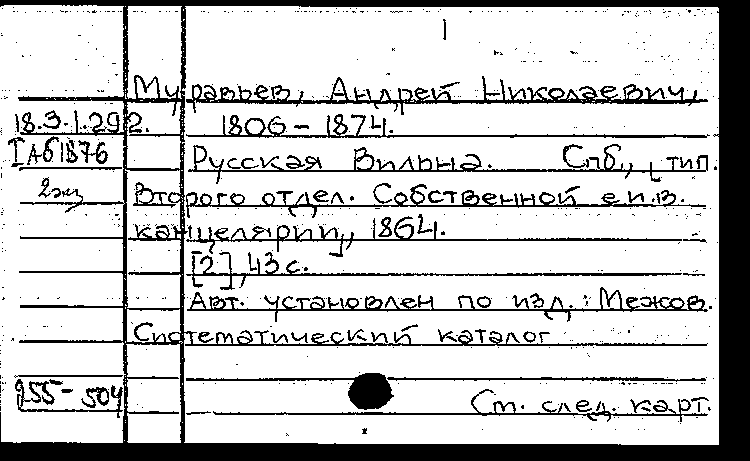 1
Муравьев, Андрей Николаевич,
18.3.1.292. 1806 – 1874.
I Аб1876 Русская Вильна. Спб., тип.
2экз Второго отдел. Собственной е.и.в.
канцелярии, 1864.
[2], 43 с.
Авт. установлен по изд.: Межов.
Систематический каталог
255-504 См. след. карт.